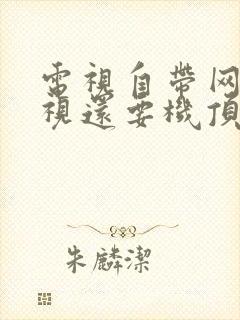 電視自帶网
視還要機頂
朱麟潔